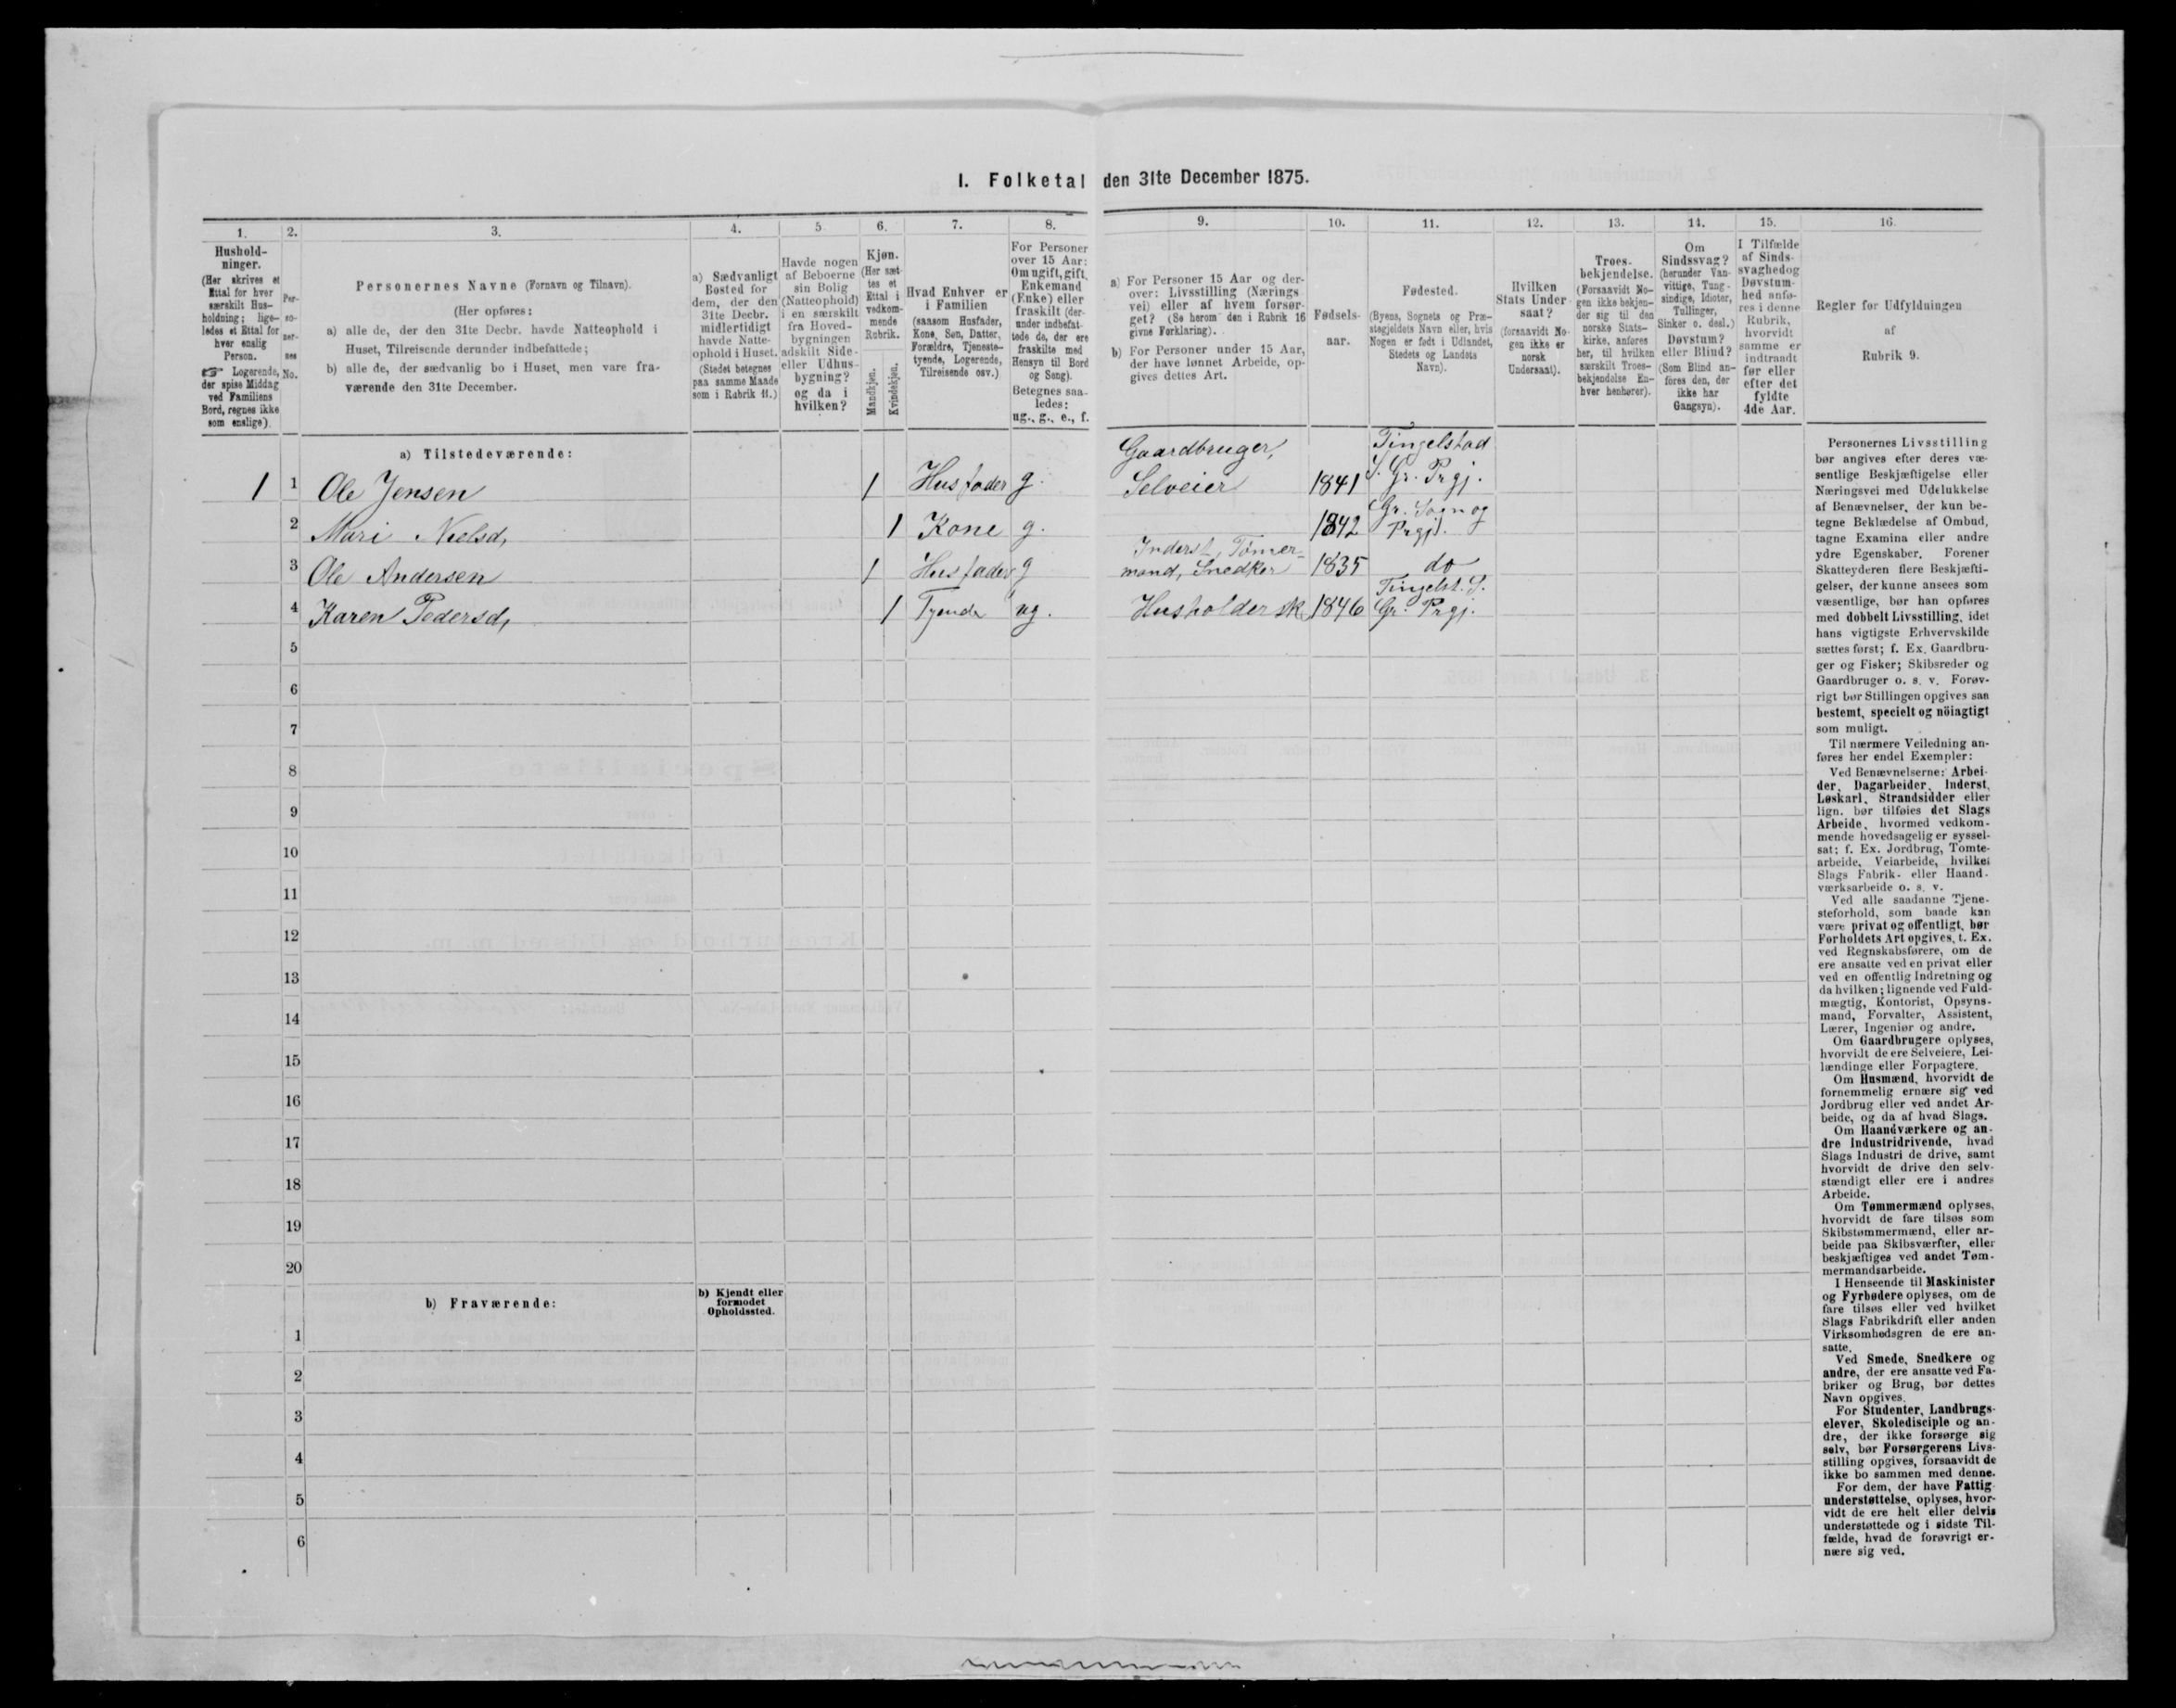 I. Folketal den 31te December 1875.
1.
Hushold-
ninger.
(Her skrives et
Ettal for hver
særskilt Hus-
holdning; lige-
ledes et Ettal for
hver enslig
Person.
☞ Logerende,
der spise Middag
ved Familiens
Bord, regnes ikke
som enslige).
2.
Per-
so-
ner-
nes
No.
3.
Personernes Navne (Fornavn og Tilnavn).
(Her opføres:
a) alle de, der den 31te Decbr. havde Natteophold i
Huset, Tilreisende derunder indbefattede;
b) alle de, der sædvanlig bo i Huset, men vare fra-
værende den 31te December.
4.
a) Sædvanligt
Bosted for
dem, der den
31te Decbr.
midlertidigt
havde Natte-
ophold i Huset.
(Stedet betegnes
paa samme Maade
som i Rubrik 11.)
5
Havde nogen
af Beboerne
sin Bolig
(Natteophold)
i en særskilt
fra Hoved-
bygningen
adskilt Side-
eller Udhus-
bygning?
og da i
hvilken?
6.
Kjøn.
(Her sæt-
tes et
Ettal i
vedkom-
mende
Rubrik.
Mandkjøn.
Kvindekjøn.
7.
Hvad Enhver er
i Familien
(saasom Husfader,
Kone, Søn, Datter,
Forældre, Tjeneste-
tyende, Logerende,
Tilreisende osv.)
8.
For Personer
over 15 Aar:
Om ugift, gift,
Enkemand
(Enke) eller
fraskilt (der-
under indbefat-
tede de, der ere
fraskilte med
Hensyn til Bord
og Seng).
Betegnes saa-
ledes:
ug., g., e., f.
9.
a) For Personer 15 Aar og der-
over: Livsstilling (Nærings
vei) eller af hvem forsør-
get? (Se herom den i Rubrik 16
givne Forklaring).
b) For Personer under 15 Aar,
der have lønnet Arbeide, op-
gives dettes Art.
10.
Fødsels-
aar.
11.
Fødested.
(Byens, Sognets og Præ-
stegjeldets Navn eller, hvis
Nogen er født i Udlandet,
Stedets og Landets
Navn).
12.
Hvilken
Stats Under-
saat?
(forsaavidt No-
gen ikke er
norsk
Undersaat).
13.
Troes-
bekjendelse.
(Forsaavidt No-
gen ikke bekjen-
der sig til den
norske Stats-
kirke, anføres
her, til hvilken
særskilt Troes-
bekjendelse En-
hver henhører).
14.
Om
Sindssvag?
(herunder Van-
vittige, Tung-
sindige, Idioter,
Tullinger,
Sinker o. desl.)
Døvstum?
eller Blind?
(Som Blind an-
føres den, der
ikke har
Gangsyn).
15.
I Tilfælde
af Sinds-
svaghedog
Døvstum-
hed anfø-
res i denne
Rubrik,
hvorvidt
samme er
indtraadt
før eller
efter det
fyldte
4de Aar.
16.
Regler for Udfyldningen
af
Rubrik 9.
a) Tilstedeværende:
1 1 Ole Jensen 1 Husfader g. Gaardbruger, Selveier 1841 Tingelstad S. Gr. Prgj.
2 Mari Nielsd, 1 Kone g. 1842 Gr. Sogn og Prgj.
3 Ole Andersen 1 Husfader g Inderst, Tømer- mand, Snedker 1835 do
4 Karen Pedersd, 1 Tyende ug. Husholdersk 1846 Tingelst. S. Gr. Prgj.
5
6
7
8
9
10
11
12
13
14
15
16
17
18
19
20
b) Fraværende:
b) Kjendt eller
formodet
Opholdssted.
1
2
3
4
5
6
Personernes Livsstilling
bør angives efter deres væ-
sentlige Beskjæftigelse eller
Næringsvei med Udelukkelse
af Benævnelser, der kun be-
tegne Beklædelse af Ombud,
tagne Examina eller andre
ydre Egenskaber. Forener
Skatteyderen flere Beskjæfti-
gelser, der kunne ansees som
væsentlige, bør han opføres
med dobbelt Livsstilling, idet
hans vigtigste Erhvervskilde
sættes først; f. Ex. Gaardbru-
ger og Fisker; Skibsreder og
Gaardbruger o. s. v. Forøv-
rigt bør Stillingen opgives saa
bestemt, specielt og nöiagtigt
som muligt.
Til nærmere Veiledning an-
føres her endel Exempler:
Ved Benævnelserne: Arbei-
der, Dagarbeider, Inderst,
Løskarl, Strandsidder eller
lign. bør tilføies det Slags
Arbeide, hvormed vedkom-
mende hovedsagelig er syssel-
sat; f. Ex. Jordbrug, Tomte-
arbeide, Veiarbeide, hvilket
Slags Fabrik- eller Haand-
værksarbeide o. s. v.
Ved alle saadanne Tjene-
steforhold, som baade kan
være privat og offentligt, bør
Forholdets Art opgives, t. Ex.
ved Regnskabsførere, om de
ere ansatte ved en privat eller
ved en offentlig Indretning og
da hvilken; lignende ved Fuld-
mægtig, Kontorist, Opsyns-
mand, Forvalter, Assistent,
Lærer, Ingeniør og andre.
Om Gaardbrugere oplyses,
hvorvidt de ere Selveiere, Lei-
lændinge eller Forpagtere.
Om Husmænd, hvorvidt de
fornemmelig ernære sig ved
Jordbrug eller ved andet Ar-
beide, og da af hvad Slags.
Om Haandværkere og an-
dre Industridrivende, hvad
Slags Industri de drive, samt
hvorvidt de drive den selv-
stændigt eller ere i andres
Arbeide.
Om Tømmermænd oplyses,
hvorvidt de fare tilsøs som
Skibstømmermænd, eller ar-
beide paa Skibsværfter, eller
beskjæftiges ved andet Tøm-
mermandsarbeide.
I Henseende til Maskinister
og Fyrbødere oplyses, om de
fare tilsøs eller ved hvilket
Slags Fabrikdrift eller anden
Virksomhedsgren de ere an-
satte.
Ved Smede, Snedkere og
andre, der ere ansatte ved Fa-
briker og Brug, bør dettes
Navn opgives.
For Studenter, Landbrugs-
elever, Skoledisciple og an-
dre, der ikke forsørge sig
selv, bør Forsørgerens Livs-
stilling opgives, forsaavidt de
ikke bo sammen med denne.
For dem, der have Fattig-
understøttelse, oplyses, hvor-
vidt de ere helt eller delvis
understøttede og i sidste Til-
fælde, hvad de forøvrigt er-
nære sig ved.